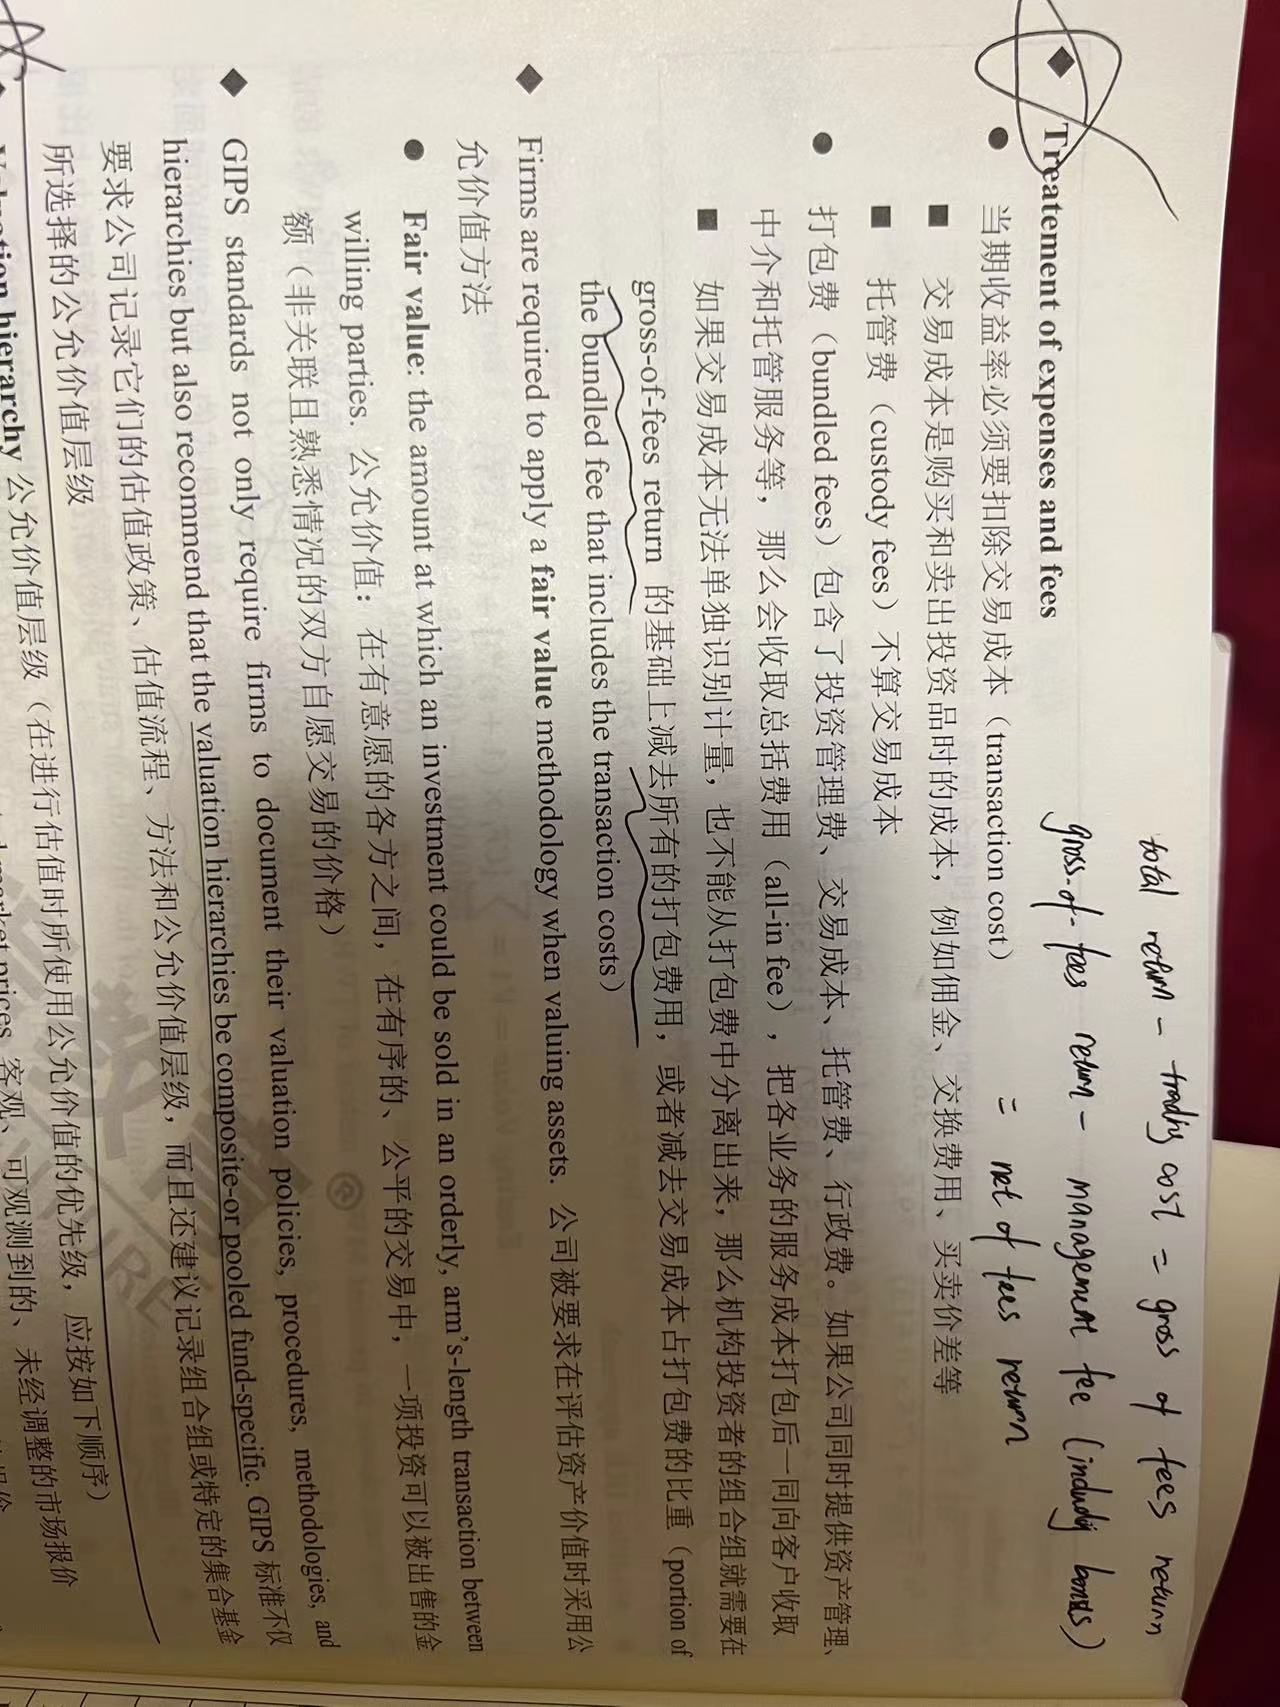 total return - trading cost = gross of fees return
gross-of-fees return - management fee (including bonds)
= net of fees return
◆ Treatement of expenses and fees
● 当期收益率必须要扣除交易成本（transaction cost）
■ 交易成本是购买和卖出投资品时的成本，例如佣金、交换费用、买卖价差等
■ 托管费（custody fees）不算交易成本
● 打包费（bundled fees）包含了投资管理费、交易成本、托管费、行政费。如果公司同时提供资产管理、
中介和托管服务等，那么会收取总括费用（all-in fee），把各业务的服务成本打包后一同向客户收取
■ 如果交易成本无法单独识别计量，也不能从打包费中分离出来，那么机构投资者的组合组就需要在
gross-of-fees return 的基础上减去所有的打包费用，或者减去交易成本占打包费的比重（portion of
the bundled fee that includes the transaction costs）
◆ Firms are required to apply a fair value methodology when valuing assets. 公司被要求在评估资产价值时采用公
允价值方法
● Fair value: the amount at which an investment could be sold in an orderly, arm's-length transaction between
willing parties. 公允价值：在有意愿的各方之间，在有序的、公平的交易中，一项投资可以被出售的金
额（非关联且熟悉情况的双方自愿交易的价格）
◆ GIPS standards not only require firms to document their valuation policies, procedures, methodologies, and
hierarchies but also recommend that the valuation hierarchies be composite-or pooled fund-specific. GIPS 标准不仅
要求公司记录它们的估值政策、估值流程、方法和公允价值层级，而且还建议记录组合组或特定的集合基金
所选择的公允价值层级
Valuation hierarchy 公允价值层级（在进行估值时所使用公允价值的优先级，应按如下顺序）
market prices 客观、可观测到的、未经调整的市场报价